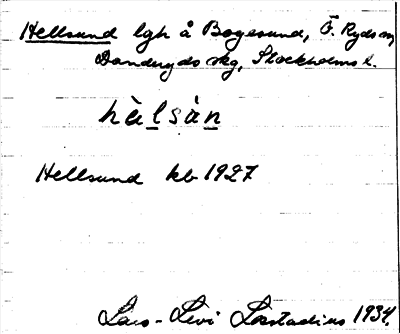 Hellsund lgh å Bogesund, Ö. Ryds sn,
Danderyds skg, Stockholms l.
hàlsàn
Hellsund kb 1927
Lars-Levi Læstadius 1934.